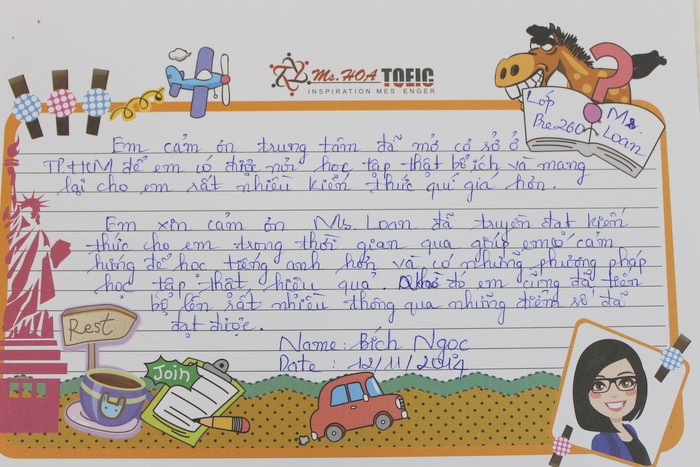 Ms. HOA TOEIC
INSPIRATION MES ENGER
Lớp Pre260
Ms. Loan
Em cảm ơn trung tâm đã mở cơ sở ở
TP.HCM để em có được nơi học tập thật bổ ích và mang
lại cho em rất nhiều kiến thức quí giá hơn.
Em xin cảm ơn Ms. Loan đã truyền đạt kiến
thức cho em trong thời gian qua giúp em có cảm
hứng để học tiếng anh hơn và có những phương pháp
học tập thật hiệu quả. Nhờ đó em cũng đã tiến
bộ lên rất nhiều thông qua những điểm số đã
đạt được.
Name: Bích Ngọc
Date: 12/11/2014
Rest
Join